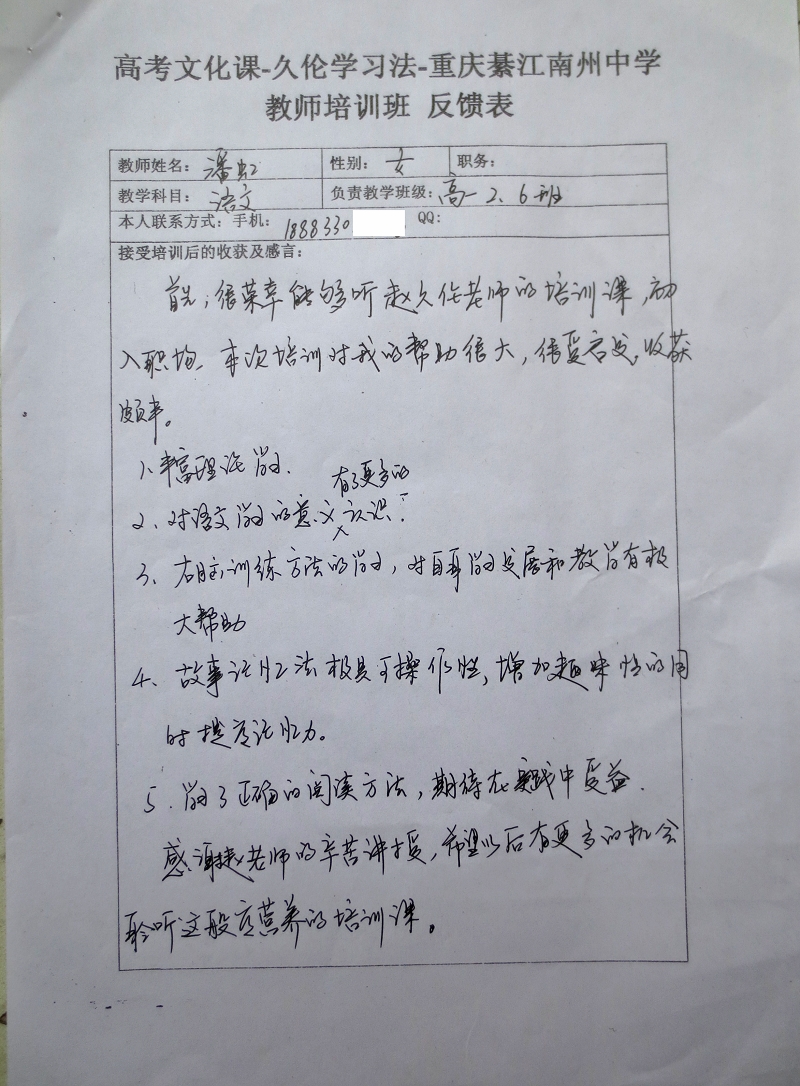 高考文化课-久伦学习法-重庆綦江南州中学
教师培训班 反馈表
教师姓名：潘虹 性别：女 职务：
教学科目：语文 负责教学班级：高一2、6班
本人联系方式：手机：1888330 QQ：
接受培训后的收获及感言：
首先，很荣幸能够听赵久伦老师的培训课，初
入职场、本次培训对我的帮助很大，很受启发，收获
颇丰。
1、丰富理论学习.
有了更多的
2、对语文学习的意义认识.
3、右脑训练方法的学习，对自身学习发展和教学有极
大帮助
4、故事记忆法极具可操作性，增加趣味性的同
时提高记忆力。
5、学习了正确的阅读方法，期待在实践中受益.
感谢赵老师的辛苦讲授，希望以后有更多的机会
聆听这般高营养的培训课。